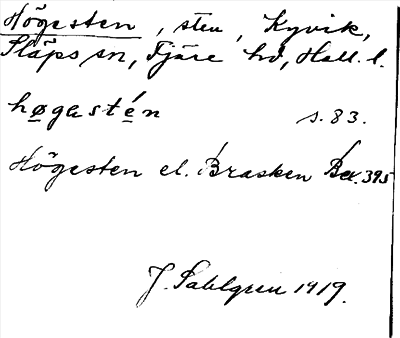 Högesten, sten, Kyvik,
Släps sn, Fjäre hd, Hall. l.
høgestén s. 83.
Högesten el. Brasken Bex. 395
J. Sahlgren 1919.